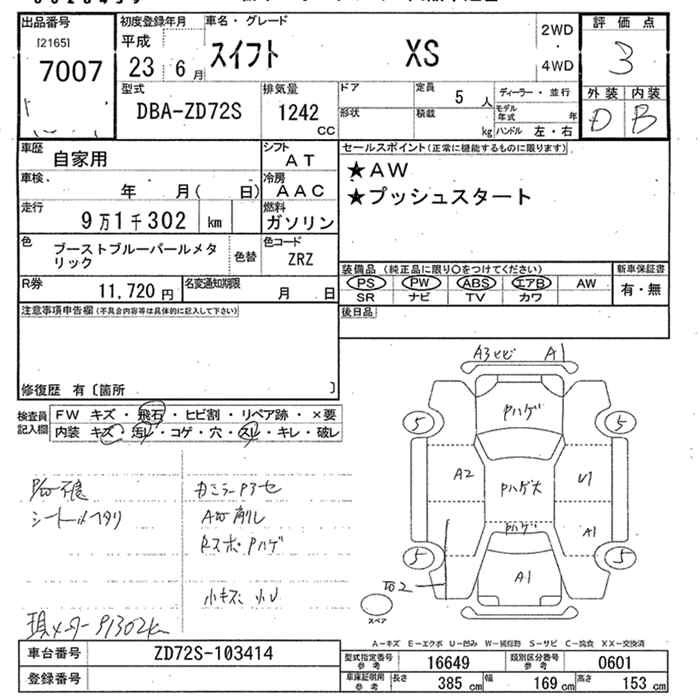 出品番号
[2165]
7007
初度登録年月
平成
23 6月
車名・グレード
スイフト XS
2WD
4WD
評価点
3
外装 内装
D B
型式
DBA-ZD72S
排気量
1242
CC
ドア
形状
定員
5 人
積載
kg
ディーラー・並行
モデル年式 年
ハンドル 左・右
車歴
自家用
シフト
AT
車検
年 月( 日)
冷房
AAC
走行
9万1千302 km
燃料
ガソリン
色
ブーストブルーパールメタリック
色替
色コード
ZRZ
R券
11,720 円
名変通知期限
月 日
セールスポイント(正常に機能するものに限ります)
★AW
★プッシュスタート
装備品(純正品に限り○をつけてください)
PS PW ABS エアB AW
SR ナビ TV カワ
新車保証書
有・無
後日品
注意事項申告欄(不具合内容等は具体的に記入して下さい)
修復歴 有〔箇所 〕
検査員記入欄
FW キズ・飛石・ヒビ割・リペア跡・×要
内装 キズ・汚レ・コゲ・穴・スレ・キレ・破レ
シートヘタリ
AW削レ
RスポPハゲ
小キズ 小U
現メーター91302km
A3ヒビ A1
Pハゲ
5 5
A2 Pハゲ大 U1
Pハゲ A1
5 5
A1
スペア
A-キズ E-エクボ U-凹み W-補修跡 S-サビ C-腐食 XX-交換済
車台番号
ZD72S-103414
登録番号
型式指定番号参考
16649
類別区分番号参考
0601
車庫証明用参考
長さ 385 cm
幅 169 cm
高さ 153 cm